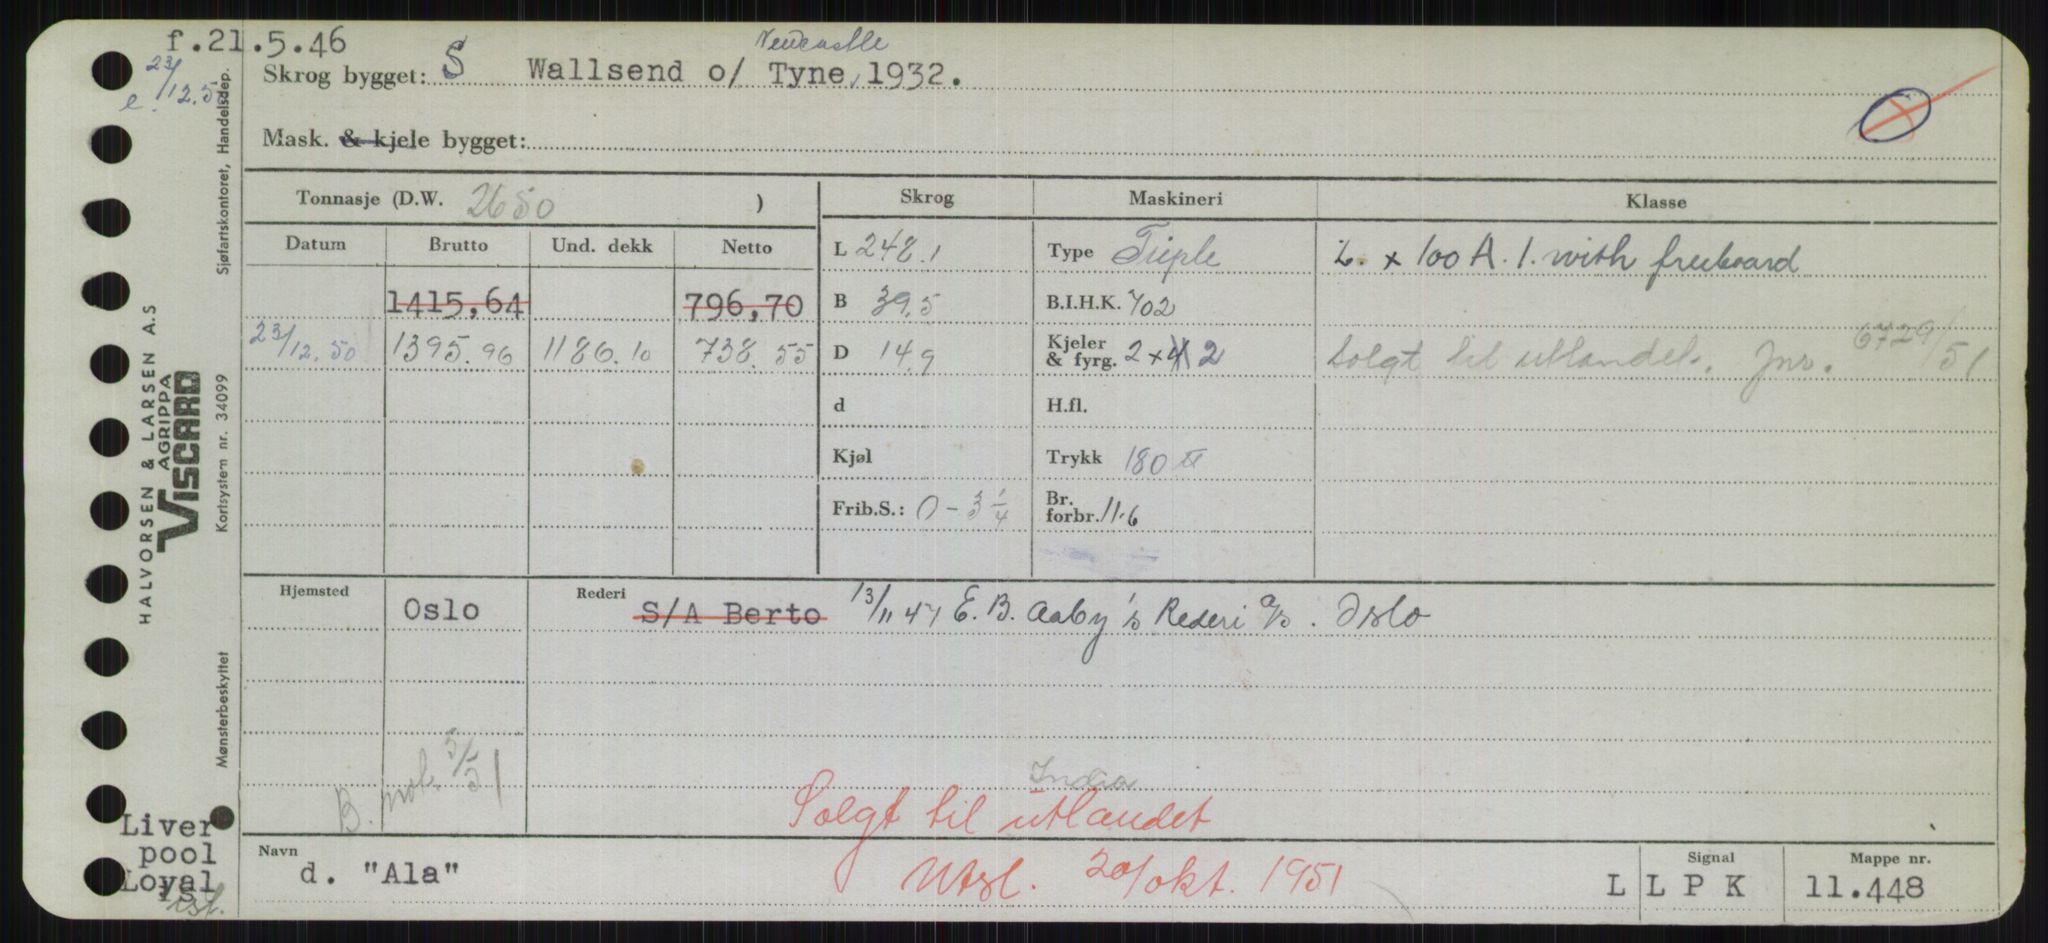 f.21.5.46
23/12.5
e.
Skrog bygget: S Wallsend o/ Tyne, 1932.
Newcastle
Mask. & kjele bygget:
Tonnasje (D.W. 2650 )
Skrog
Maskineri
Klasse
Datum Brutto Und. dekk Netto
L 248.1
Type Triple
L. x 100 A. 1. with freeboard
1415,64 796,70
B 39.5
B.I.H.K. 702
23/12.50 1395.96 1186.10 738.55
D 14.9
Kjeler & fyrg. 2 x 2
Solgt til utlandet. Jnr. 6729/51
d
H.fl.
Kjøl
Trykk 180
Frib.S.: 0 - 3 1/4
Br. forbr. 11.6
Hjemsted Oslo
Rederi S/A Berto 13/11 47 E. B. Aaby's Rederi a/s. Oslo
B. not. 5/51
India
Solgt til utlandet
Navn d. "Ala"
Utsl. 20/okt. 1951
Signal L L P K
Mappe nr. 11.448
Liver
pool
Loyal
HALVORSEN & LARSEN A.S
AGRIPPA
VISCARD
Sjøfartskontoret, Handelsdep.
Kortsystem nr. 34099
Mønsterbeskyttet